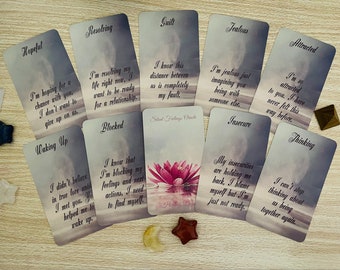 Hopeful
I'm hoping for a
chance with you.
I don't want to
give up on us.
Resolving
I'm resolving my
life right now. I
want to be ready
for a relationship.
Guilt
I know this
distance between
us is completely
my fault.
Jealous
I'm jealous just
imagining your
being with
someone else.
Attracted
I'm so
attracted to
you. I have
never felt this
way before.
Waking Up
I didn't believe
in true love until
I met you.
helped me to
wake up.
Blocked
I know that
I'm blocking my
feelings and
actions. I need
to find myself.
Silent Feelings Oracle
Insecure
My insecurities
are holding me
back. I blame
myself but I'm
just not ready.
Thinking
I can't stop
thinking about
us being
together again.